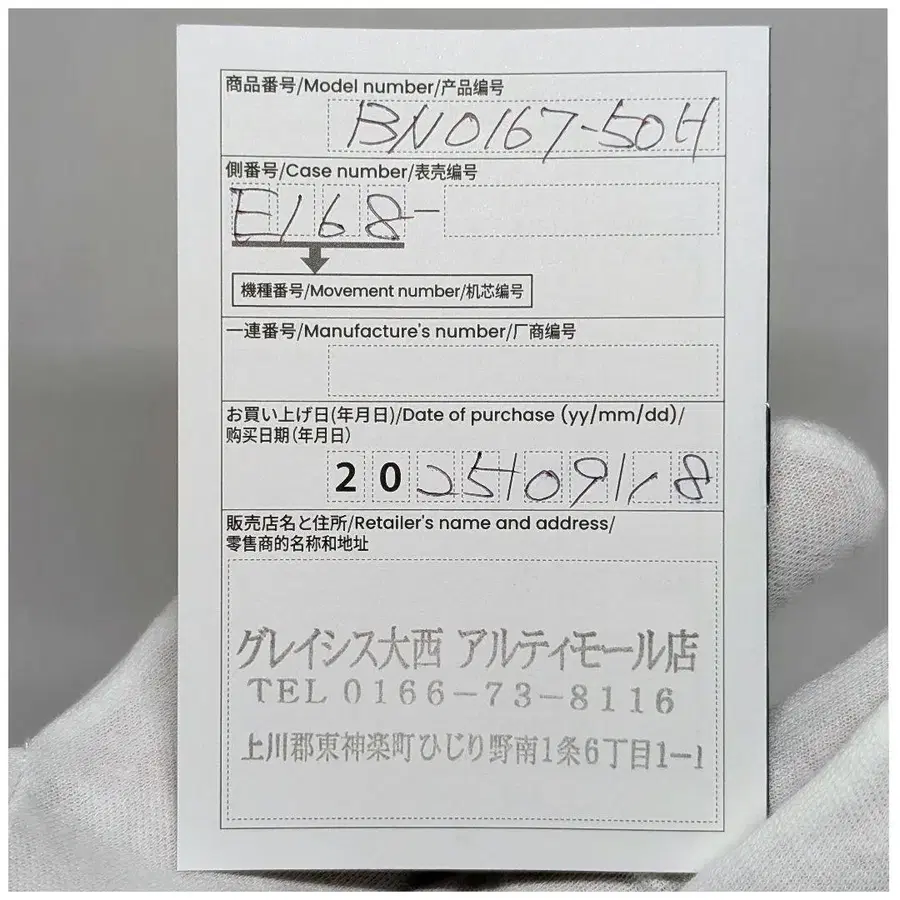 商品番号/Model number/产品编号
BN0167-50H
側番号/Case number/表壳编号
E168-
機種番号/Movement number/机芯编号
一連番号/Manufacture's number/厂商编号
お買い上げ日(年月日)/Date of purchase (yy/mm/dd)/
购买日期(年月日)
2025/09/18
販売店名と住所/Retailer's name and address/
零售商的名称和地址
グレイシス大西 アルティモール店
TEL 0166-73-8116
上川郡東神楽町ひじり野南1条6丁目1-1